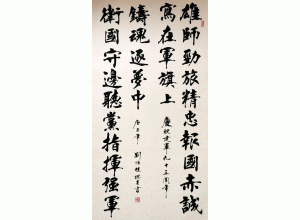 雄師勁旅精忠報國赤誠
寫在軍旗上
慶祝建軍九十五周年
衛國守邊聽黨指揮強軍
鑄魂逐夢中